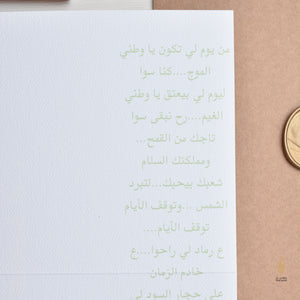 من يوم لي تكون يا وطني
الموج....كنا سوا
ليوم لي بيعتق يا وطني
الغيم....رح نبقى سوا
تاجك من القمح...
ومملكتك السلام
شعبك بيحبك...لتبرد
الشمس ...وتوقف الأيام
توقف الأيام....
ع رماد لي راحوا...ع
خادم الزمان
على حجار السود لي